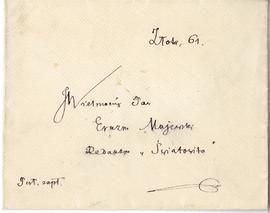 Złota, 61.
Wielmożny Pan
Erazm Majewski
Redaktor „Światowita”